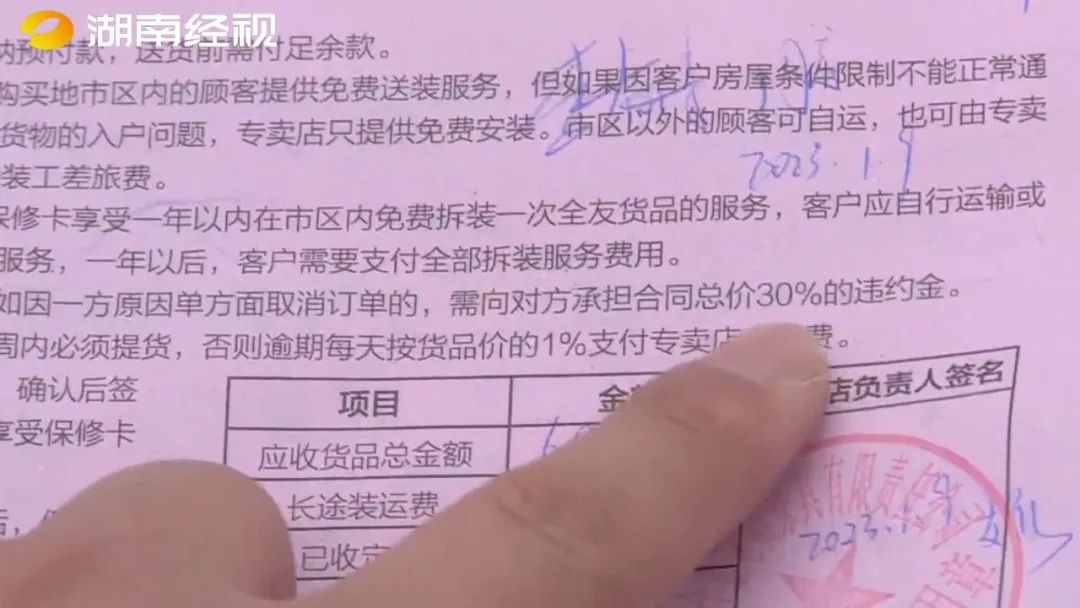 湖南经视
纳预付款，送货前需付足余款。
购买地市区内的顾客提供免费送装服务，但如果因客户房屋条件限制不能正常通
货物的入户问题，专卖店只提供免费安装。市区以外的顾客可自运，也可由专卖
2023.1.9
装工差旅费。
保修卡享受一年以内在市区内免费拆装一次全友货品的服务，客户应自行运输或
服务，一年以后，客户需要支付全部拆装服务费用。
如因一方原因单方面取消订单的，需向对方承担合同总价30%的违约金。
周内必须提货，否则逾期每天按货品价的1%支付专卖店 费。
确认后签
享受保修卡
项目
店负责人签名
应收货品总金额
长途装运费
已收定
具有限责任公
2023.1.9
用章